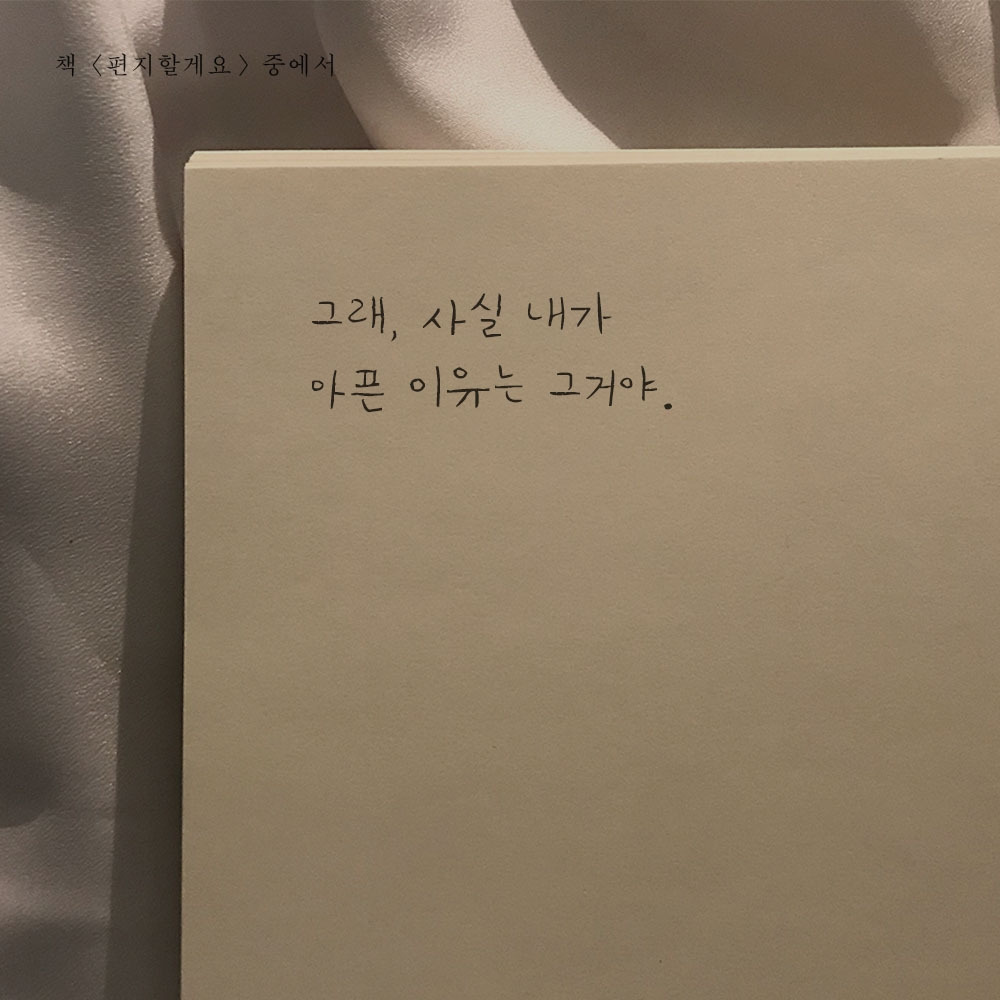 책 〈편지할게요〉 중에서
그래, 사실 내가
아픈 이유는 그거야.